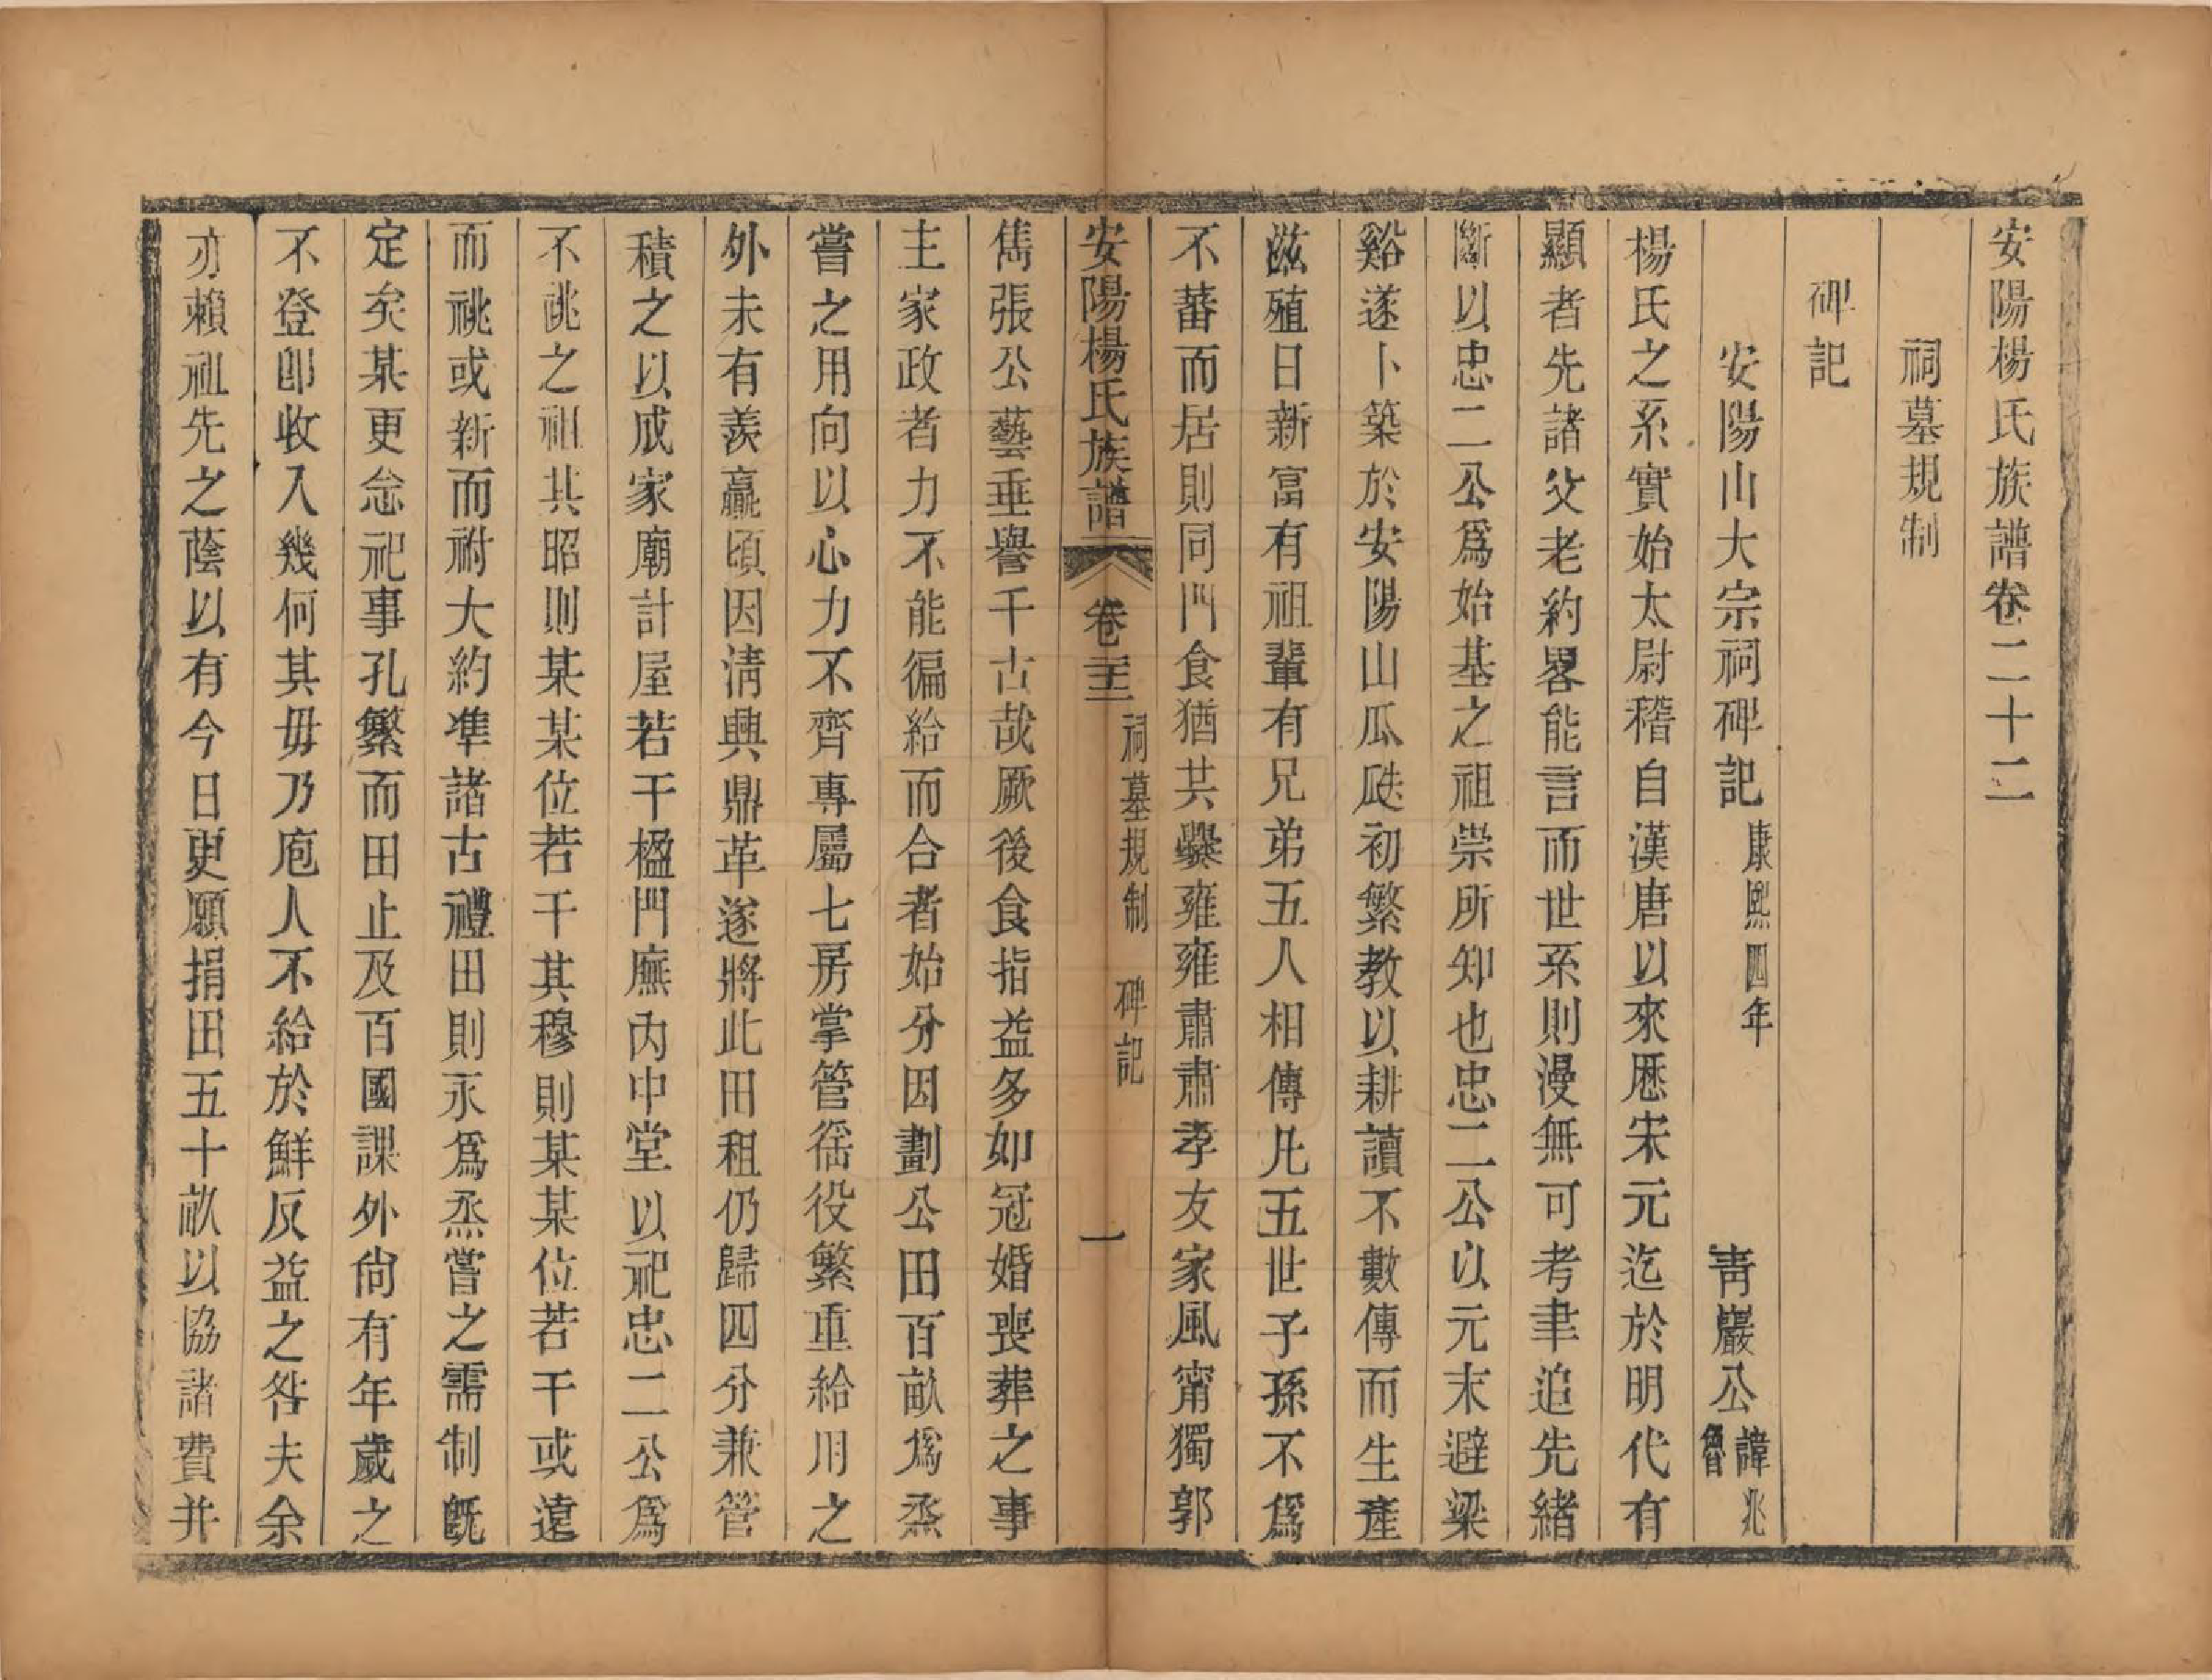 安陽楊氏族譜卷二十二
祠墓規制
碑記
安陽山大宗祠碑記 康熙四年 靑巖公諱兆魯
楊氏之系實始太尉稽自漢唐以來厯宋元迄於明代有
顯者先諸父老約畧能言而世系則漫無可考聿追先緒
斷以忠二公爲始基之祖崇所知也忠二公以元末避梁
谿遂卜築於安陽山瓜瓞初繁教以耕讀不數傳而生產
滋殖日新富有祖輩有兄弟五人相傳凡五世子孫不爲
不蕃而居則同門食猶共爨雍雍肅肅孝友家風甯獨郭
安陽楊氏族譜 卷二十二 祠墓規制 碑記 一
雋張公藝垂譽千古哉厥後食指益多如冠婚喪葬之事
主家政者力不能徧給而合者始分因劃公田百畝爲烝
嘗之用向以心力不齊專屬七房掌管徭役繁重給用之
外未有羨贏頃因淸興鼎革遂將此田租仍歸四分兼管
積之以成家廟計屋若干楹門廡內中堂以祀忠二公爲
不祧之祖其昭則某某位若干其穆則某某位若干或遠
而祧或新而祔大約準諸古禮田則永爲烝嘗之需制旣
定矣某更念祀事孔繁而田止及百國課外尙有年歲之
不登卽收入幾何其毋乃庖人不給於鮮反益之咎夫余
亦賴祖先之蔭以有今日更願捐田五十畝以協諸費并